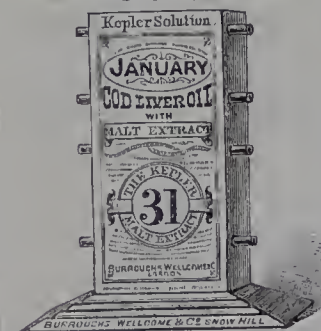 Kepler Solution.
JANUARY
COD LIVER OIL
WITH
MALT EXTRACT
THE KEPLER
31
MALT EXTRACT
BURROUGHS WELLCOME & Co
LONDON
BURROUGHS WELLCOME & Co SNOW HILL